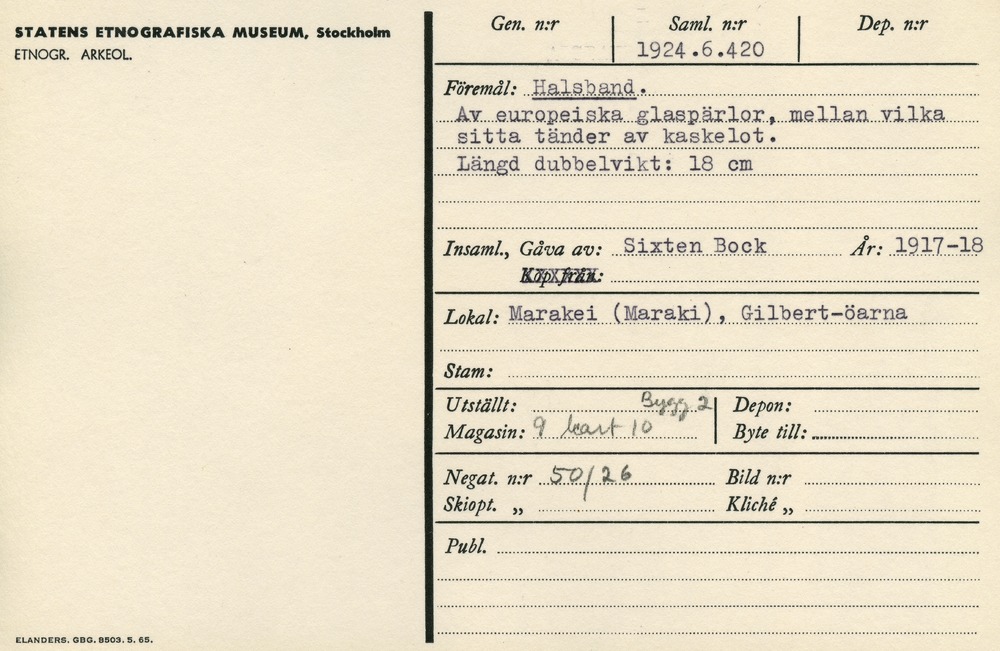 STATENS ETNOGRAFISKA MUSEUM, Stockholm
ETNOGR. ARKEOL.
Gen. n:r
Saml. n:r
Dep. n:r
1924.6.420
Föremål: Halsband.
Av europeiska glaspärlor, mellan vilka
sitta tänder av kaskelot.
Längd dubbelvikt: 18 cm
Insaml., Gåva av: Sixten Bock År: 1917-18
Köp från:
Lokal: Marakei (Maraki), Gilbert-öarna
Stam:
Utställt: Bygg 2
Magasin: 9 kart 10
Depon:
Byte till:
Negat. n:r 50/26
Bild n:r
Skiopt. „
Kliché „
Publ.
ELANDERS. GBG. 8503. 5. 65.